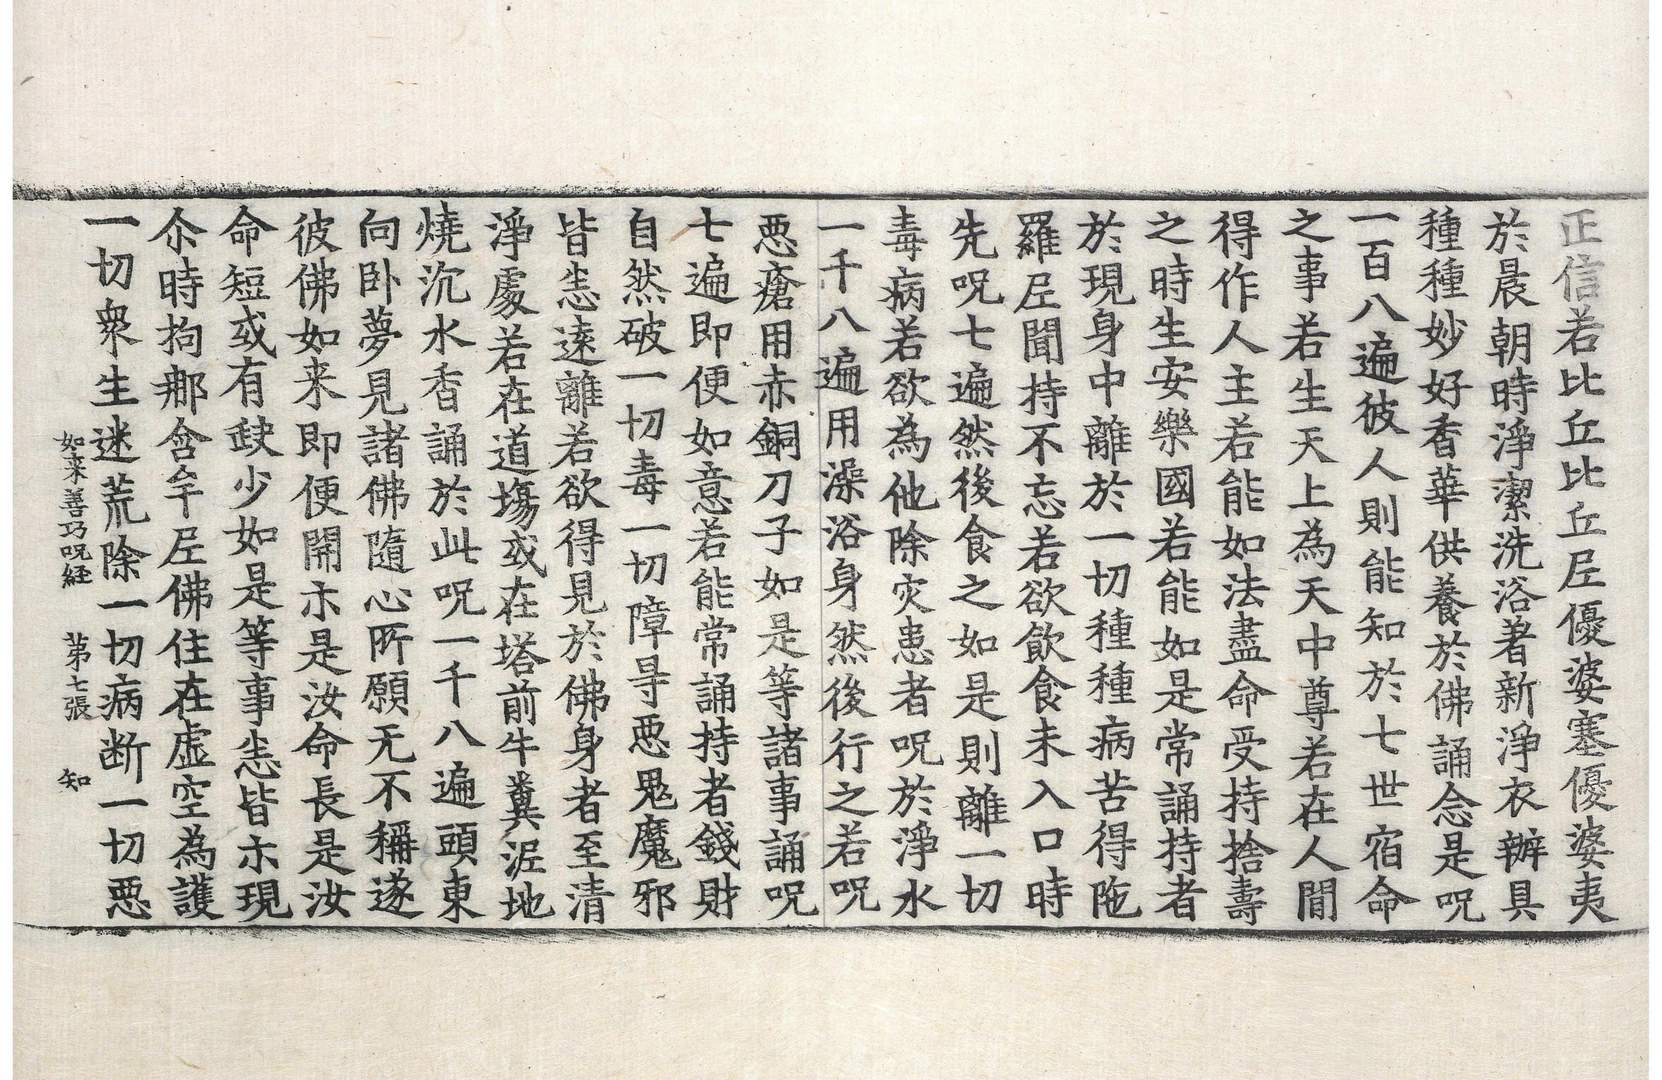 正信若比丘比丘尼優婆塞優婆夷
於晨朝時淨潔洗浴著新淨衣辦具
種種妙好香華供養於佛誦念是呪
一百八遍彼人則能知於七世宿命
之事若生天上為天中尊若在人間
得作人主若能如法盡命受持捨壽
之時生安樂國若能如是常誦持者
於現身中離於一切種種病苦得陁
羅尼聞持不忘若欲飲食未入口時
先呪七遍然後食之如是則離一切
毒病若欲為他除灾患者呪於淨水
一千八遍用澡浴身然後行之若呪
惡瘡用赤銅刀子如是等諸事誦呪
七遍即便如意若能常誦持者錢財
自然破一切毒一切障㝵惡鬼魔邪
皆悉遠離若欲得見於佛身者至清
淨處若在道場或在塔前牛糞泥地
燒沉水香誦於此呪一千八遍頭東
向卧夢見諸佛隨心所願无不稱遂
彼佛如来即便開示是汝命長是汝
命短或有缺少如是等事悉皆示現
尒時拘那含牟尼佛住在虛空為護
一切衆生迷荒除一切病断一切惡
如来善巧呪経 苐七張 知